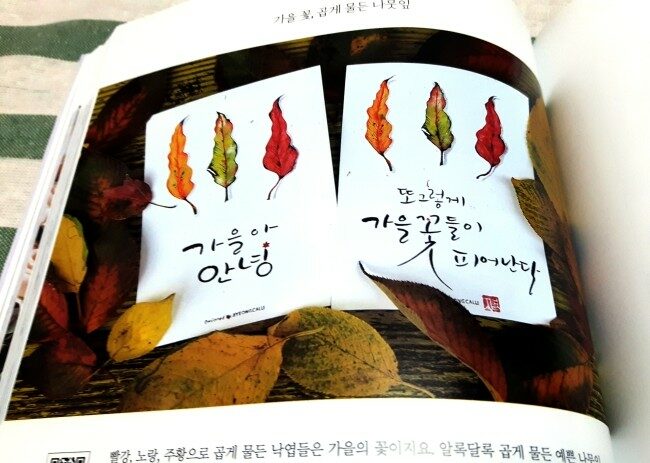 가을 꽃, 곱게 물든 나뭇잎
가을아
안녕
또 그렇게
가을 꽃들이
피어난다
빨강, 노랑, 주황으로 곱게 물든 낙엽들은 가을의 꽃이지요. 알록달록 곱게 물든 예쁜